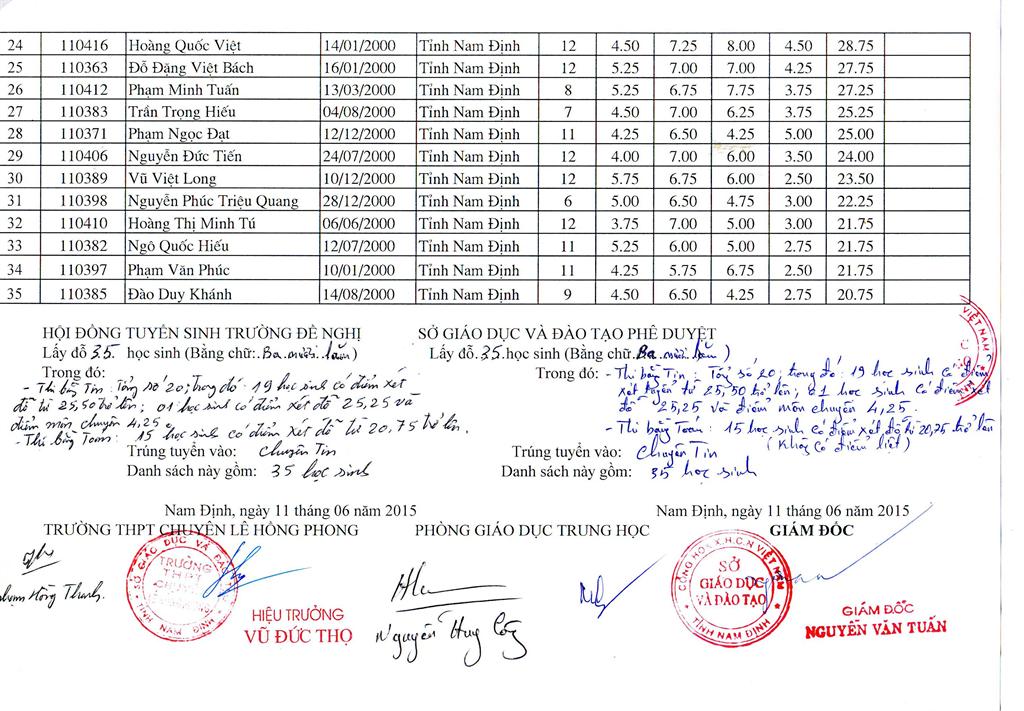 24 110416 Hoàng Quốc Việt 14/01/2000 Tỉnh Nam Định 12 4.50 7.25 8.00 4.50 28.75
25 110363 Đỗ Đặng Việt Bách 16/01/2000 Tỉnh Nam Định 12 5.25 7.00 7.00 4.25 27.75
26 110412 Phạm Minh Tuấn 13/03/2000 Tỉnh Nam Định 8 5.25 6.75 7.75 3.75 27.25
27 110383 Trần Trọng Hiếu 04/08/2000 Tỉnh Nam Định 7 4.50 7.00 6.25 3.75 25.25
28 110371 Phạm Ngọc Đạt 12/12/2000 Tỉnh Nam Định 11 4.25 6.50 4.25 5.00 25.00
29 110406 Nguyễn Đức Tiến 24/07/2000 Tỉnh Nam Định 12 4.00 7.00 6.00 3.50 24.00
30 110389 Vũ Việt Long 10/12/2000 Tỉnh Nam Định 12 5.75 6.75 6.00 2.50 23.50
31 110398 Nguyễn Phúc Triệu Quang 28/12/2000 Tỉnh Nam Định 6 5.00 6.50 4.75 3.00 22.25
32 110410 Hoàng Thị Minh Tú 06/06/2000 Tỉnh Nam Định 12 3.75 7.00 5.00 3.00 21.75
33 110382 Ngô Quốc Hiếu 12/07/2000 Tỉnh Nam Định 11 5.25 6.00 5.00 2.75 21.75
34 110397 Phạm Văn Phúc 10/01/2000 Tỉnh Nam Định 11 4.25 5.75 6.75 2.50 21.75
35 110385 Đào Duy Khánh 14/08/2000 Tỉnh Nam Định 9 4.50 6.50 4.25 2.75 20.75
HỘI ĐỒNG TUYỂN SINH TRƯỜNG ĐỀ NGHỊ
Lấy đỗ 35. học sinh (Bằng chữ: Ba mươi lăm)
Trong đó:
- Thi bằng Tin: Tổng số 20; trong đó 19 học sinh có điểm xét
đỗ từ 25,50 trở lên; 01 học sinh có điểm xét đỗ 25,25 và
điểm môn chuyên 4,25.
- Thi bằng Toán: 15 học sinh có điểm xét đỗ từ 20,75 trở lên.
Trúng tuyển vào: Chuyên Tin
Danh sách này gồm: 35 học sinh
SỞ GIÁO DỤC VÀ ĐÀO TẠO PHÊ DUYỆT
Lấy đỗ 35. học sinh (Bằng chữ: Ba mươi lăm)
Trong đó: - Thi bằng Tin: Tổng số 20; trong đó: 19 học sinh có điểm
xét tuyển từ 25,50 trở lên; 01 học sinh có điểm xét
đỗ 25,25 và điểm môn chuyên 4,25.
- Thi bằng Toán: 15 học sinh có điểm xét đỗ từ 20,75 trở lên
(Không có điểm liệt)
Trúng tuyển vào: Chuyên Tin
Danh sách này gồm: 35 học sinh
VIỆT NAM
Nam Định, ngày 11 tháng 06 năm 2015
TRƯỜNG THPT CHUYÊN LÊ HỒNG PHONG
SỞ GIÁO DỤC VÀ ĐÀO TẠO
TRƯỜNG
THPT
CHUYÊN
TỈNH NAM ĐỊNH
HIỆU TRƯỞNG
VŨ ĐỨC THỌ
PHÒNG GIÁO DỤC TRUNG HỌC
Nguyễn Huy
Nam Định, ngày 11 tháng 06 năm 2015
GIÁM ĐỐC
CỘNG HÒA X.H.C.N VIỆT NAM
SỞ
GIÁO DỤC
VÀ ĐÀO TẠO
TỈNH NAM ĐỊNH
GIÁM ĐỐC
NGUYỄN VĂN TUẤN